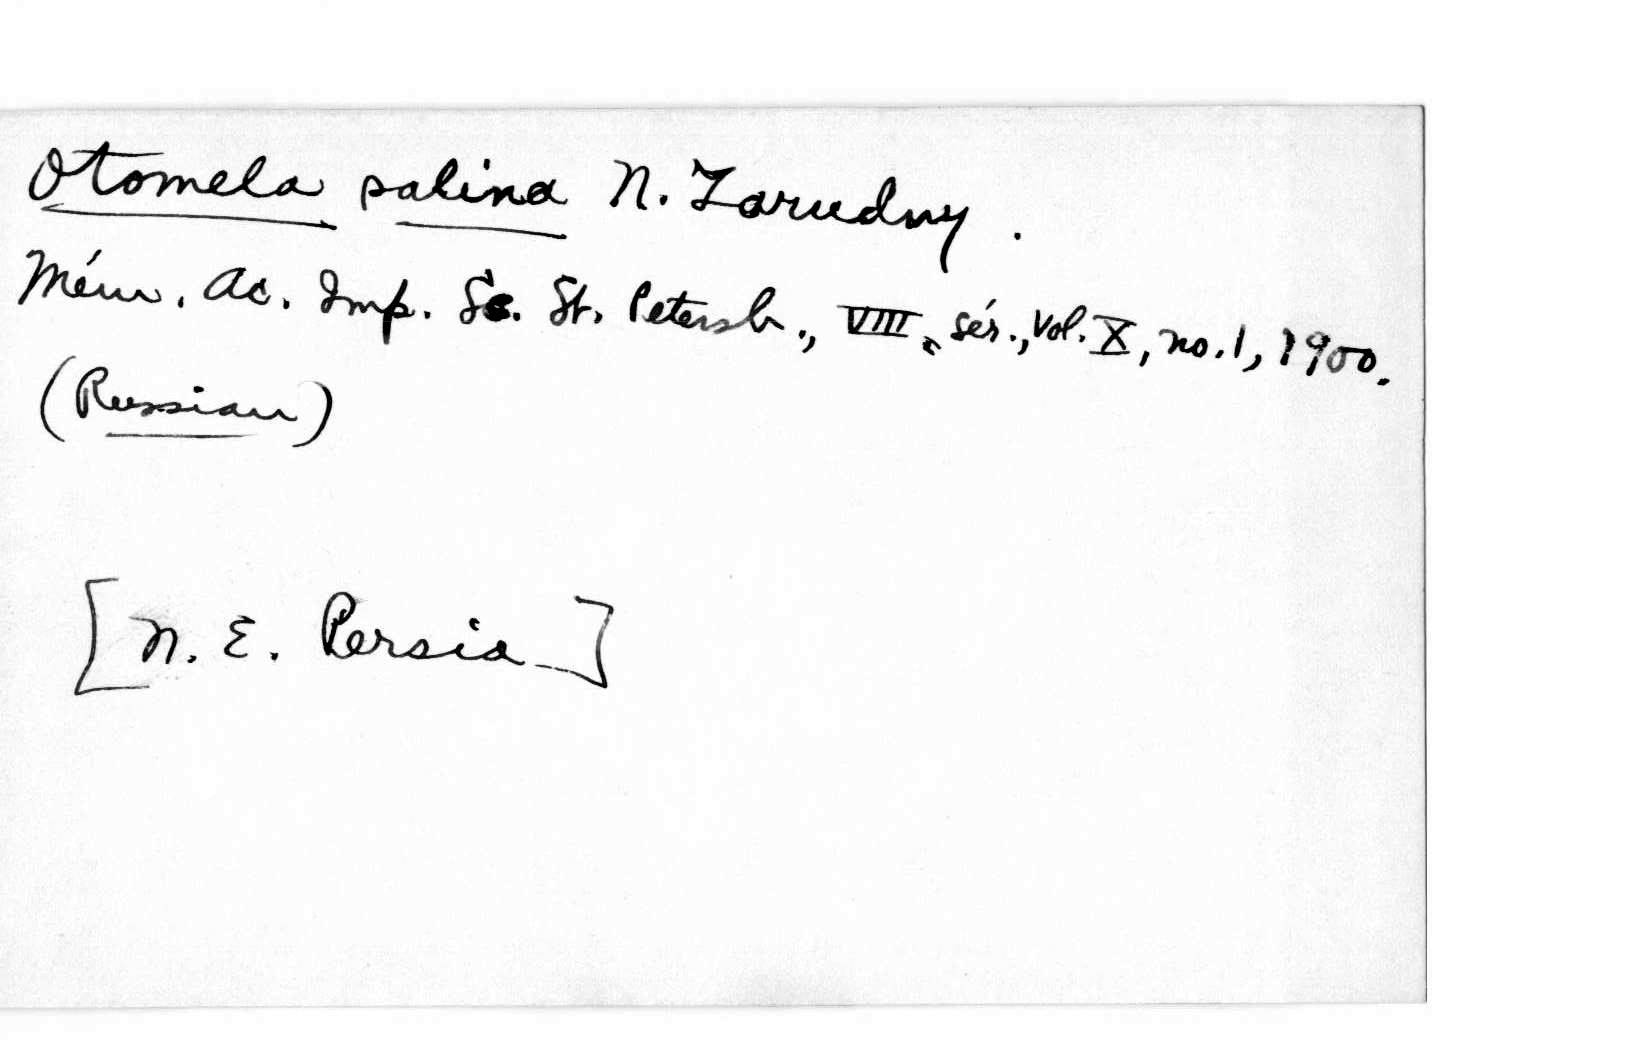 Otomela salina N. Zarudny.
Mém. Ac. Imp. Sc. St. Petersb., VIII. sér., Vol. X, no. 1, 1900.
(Russian)
[N. E. Persia]